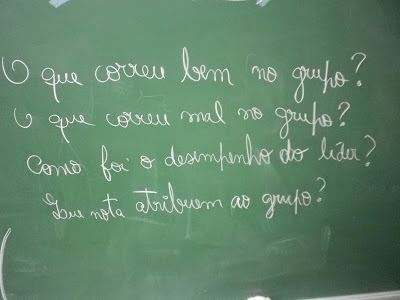 O que correu bem no grupo?
O que correu mal no grupo?
Como foi o desempenho do líder?
Que nota atribuem ao grupo?